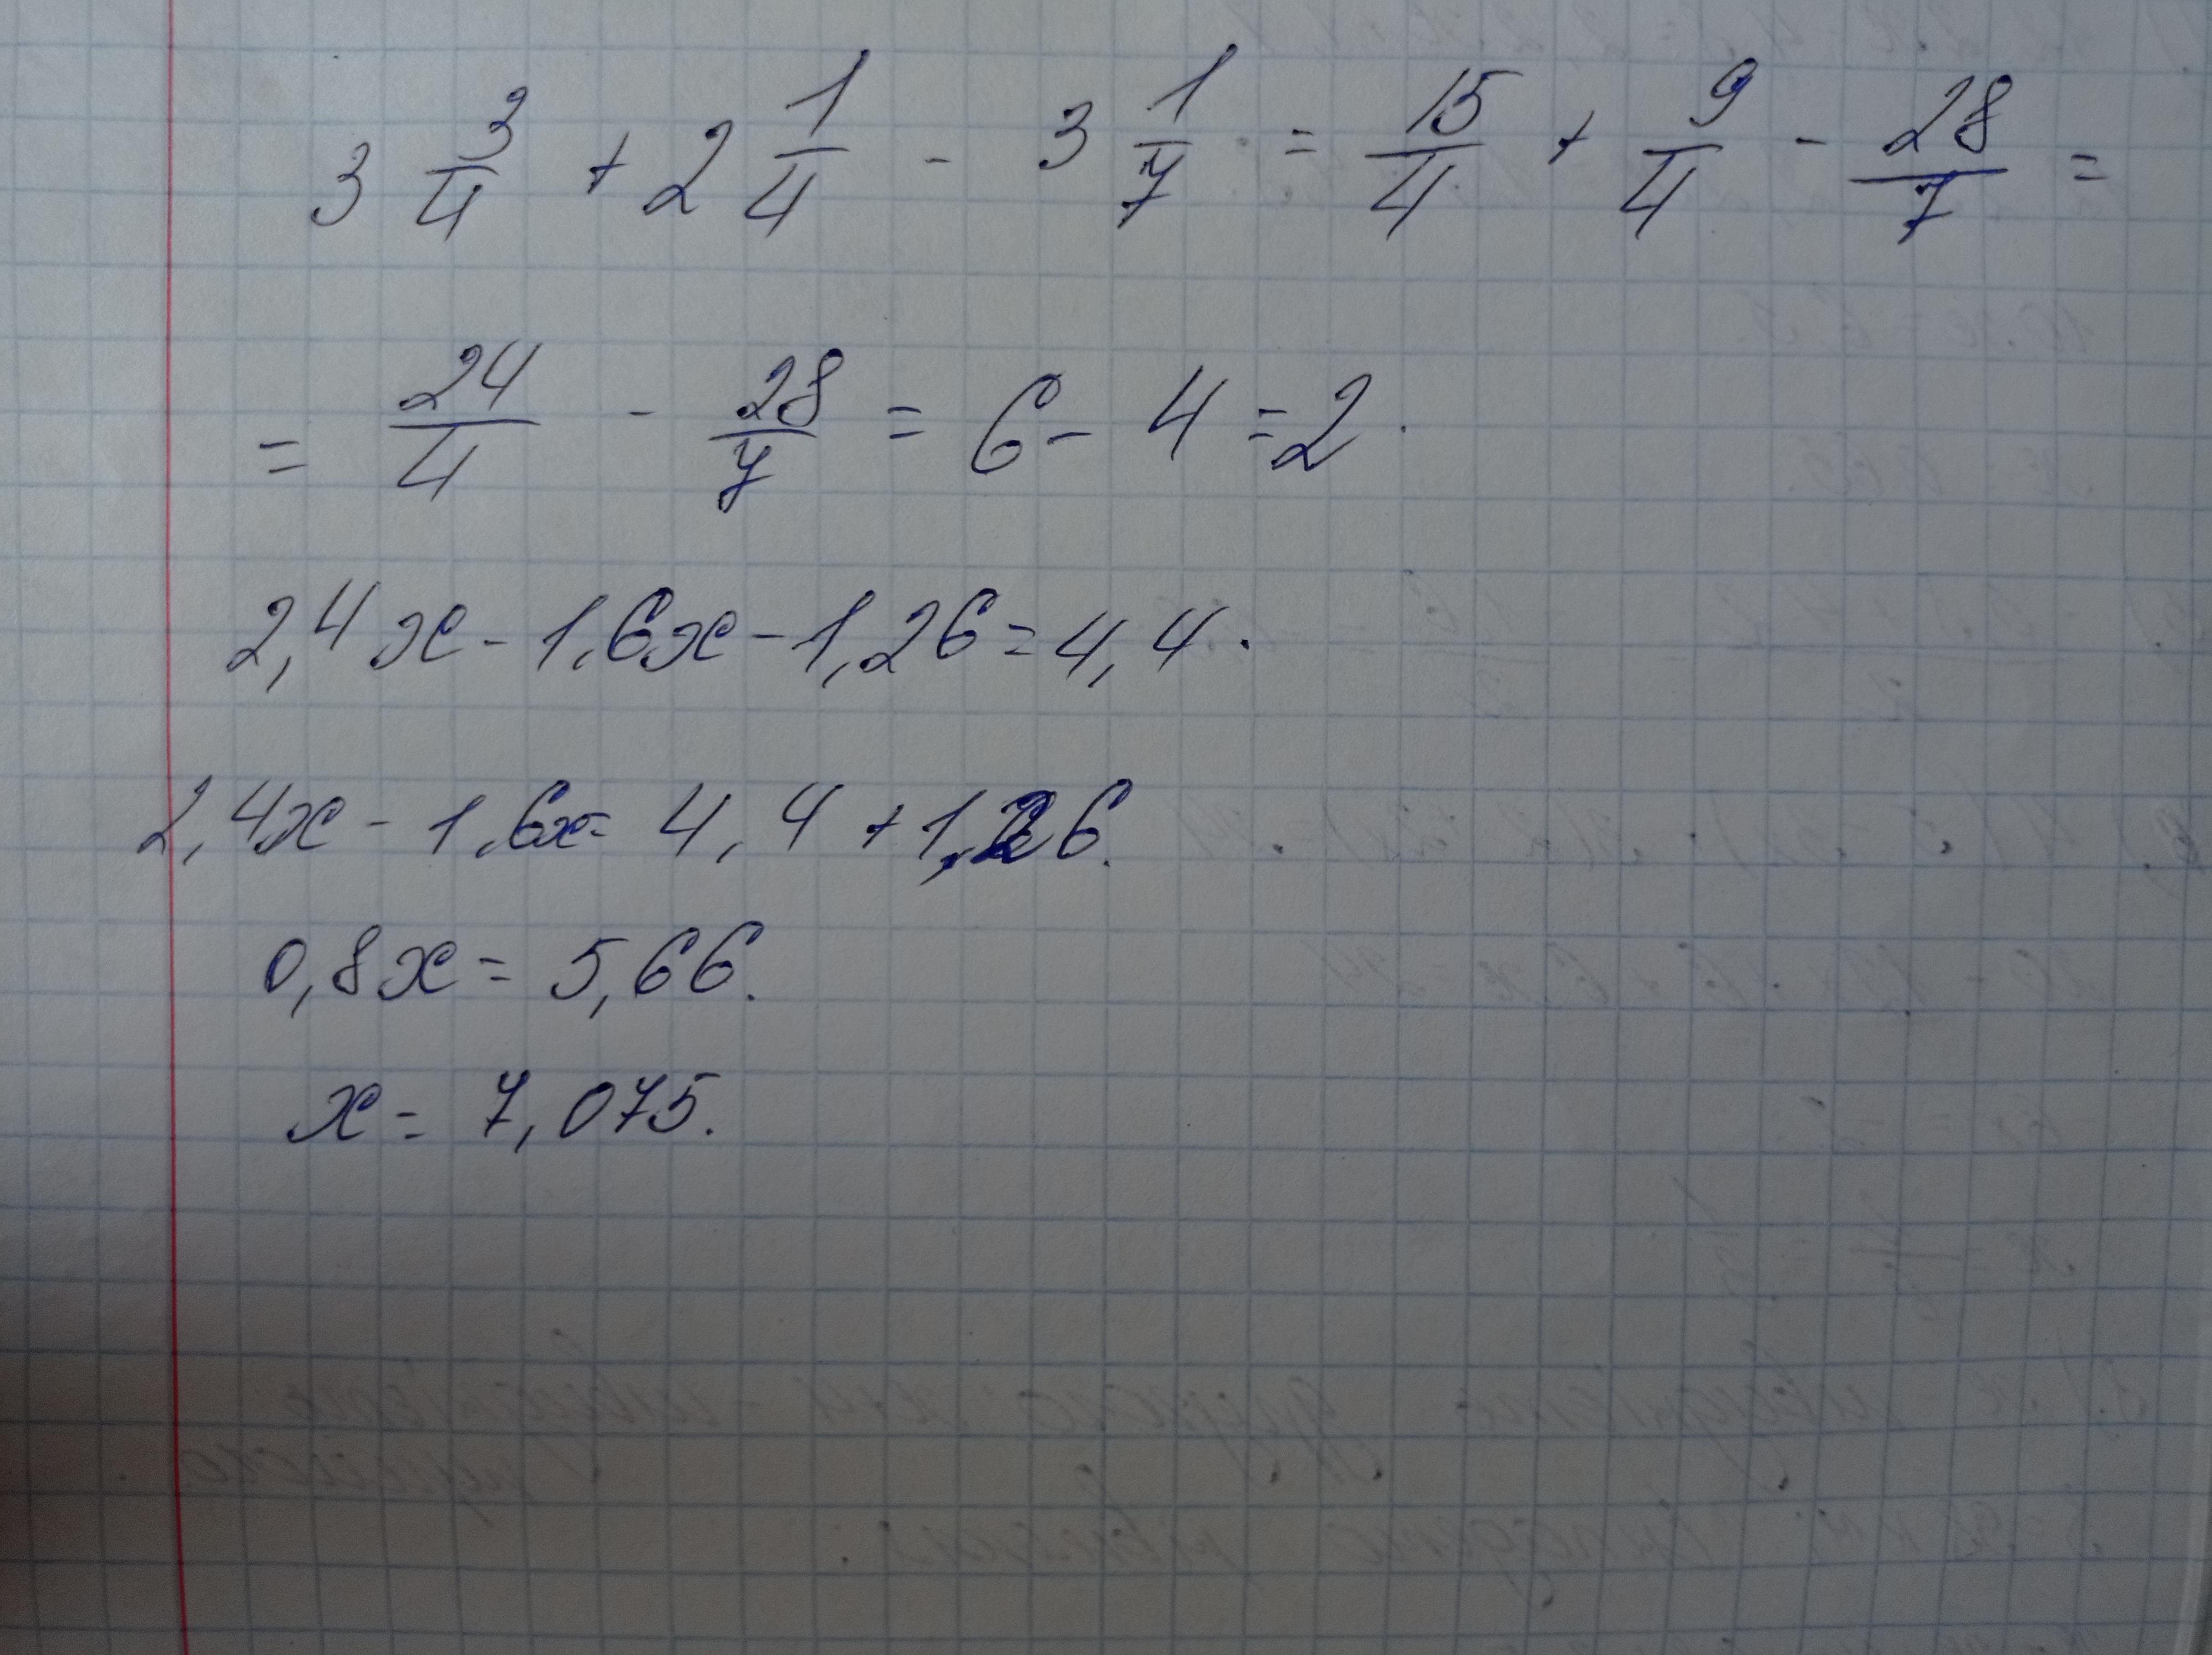 3 3/4 + 2 1/4 - 3 1/7 = 15/4 + 9/4 - 28/7 =
= 24/4 - 28/7 = 6 - 4 = 2.
2,4x - 1,6x - 1,26 = 4,4.
2,4x - 1,6x = 4,4 + 1,26.
0,8x = 5,66.
x = 7,075.